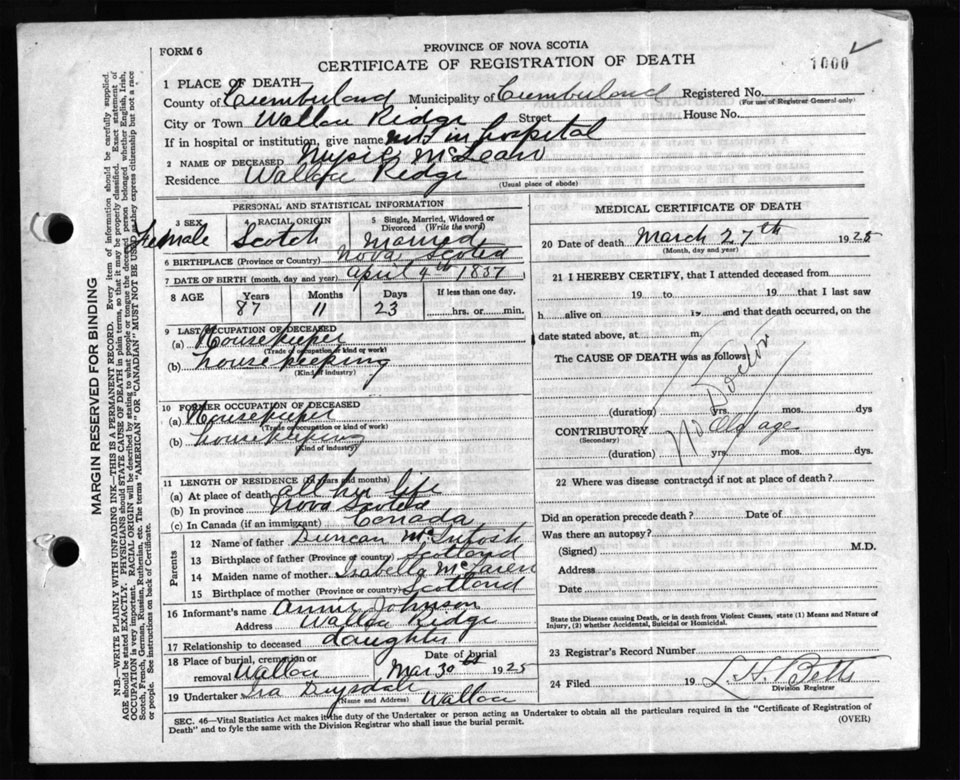 FORM 6
PROVINCE OF NOVA SCOTIA
CERTIFICATE OF REGISTRATION OF DEATH
1000
1 PLACE OF DEATH—
County of Cumberland Municipality of Cumberland Registered No.
(For use of Registrar General only)
City or Town Wallace Ridge Street House No.
If in hospital or institution, give name not in hospital
2 NAME OF DECEASED McLean
Residence Wallace Ridge
(Usual place of abode)
PERSONAL AND STATISTICAL INFORMATION
3 SEX 4 RACIAL ORIGIN 5 Single, Married, Widowed or Divorced (Write the word)
Female Scotch Married
6 BIRTHPLACE (Province or Country) Nova Scotia
7 DATE OF BIRTH (month, day and year) April 4th 1837
8 AGE Years Months Days If less than one day,
87 11 23 hrs. or min.
9 LAST OCCUPATION OF DECEASED
(a) Housekeeper
(Trade or occupation or kind or work)
(b) housekeeping
(Kind of industry)
10 FORMER OCCUPATION OF DECEASED
(a) Housekeeper
(Trade or occupation or kind of work)
(b) housekeeping
(Kind of industry)
11 LENGTH OF RESIDENCE (in years and months)
(a) At place of death all her life
(b) In province Nova Scotia
(c) In Canada (if an immigrant) Canada
Parents
12 Name of father Duncan McIntosh
13 Birthplace of father (Province or country) Scotland
14 Maiden name of mother Isabella McLaren
15 Birthplace of mother (Province or country) Scotland
16 Informant's name Annie Johnson
Address Wallace Ridge
17 Relationship to deceased daughter
18 Place of burial, cremation or removal Wallace Date of burial Mar 30th 1925
19 Undertaker Ira Drysdale Wallace
(Name and Address)
MEDICAL CERTIFICATE OF DEATH
20 Date of death March 27th 1925
(Month, day and year)
21 I HEREBY CERTIFY, that I attended deceased from
19 to 19 that I last saw
h alive on 19 and that death occurred, on the
date stated above, at m.
The CAUSE OF DEATH was as follows
No Doctor
(duration) yrs. mos. dys
CONTRIBUTORY Old age
(Secondary)
(duration) yrs. mos. dys.
22 Where was disease contracted if not at place of death?
Did an operation precede death? Date of
Was there an autopsy?
(Signed) M.D.
Address
Date
State the Disease causing Death, or in death from Violent Causes, state (1) Means and Nature of
Injury, (2) whether Accidental, Suicidal or Homicidal.
23 Registrar's Record Number
24 Filed 19 L. H. Betts
Division Registrar
SEC. 46—Vital Statistics Act makes it the duty of the Undertaker or person acting as Undertaker to obtain all the particulars required in the "Certificate of Registration of
Death" and to fyle the same with the Division Registrar who shall issue the burial permit.
(OVER)
MARGIN RESERVED FOR BINDING
N.B.—WRITE PLAINLY WITH UNFADING INK—THIS IS A PERMANENT RECORD. Every item of information should be carefully supplied.
AGE should be stated EXACTLY. PHYSICIANS should STATE CAUSE OF DEATH in plain terms, so that it may be properly classified. Exact statement of
OCCUPATION is very important. RACIAL ORIGIN will be described by stating to what people or tongue the deceased person belonged whether English, Irish,
Scotch, French, German, Russian, Ruthenian, etc. The terms "AMERICAN" or "CANADIAN" MUST NOT BE USED as they express citizenship but not a race
or people. See instructions on back of Certificate.